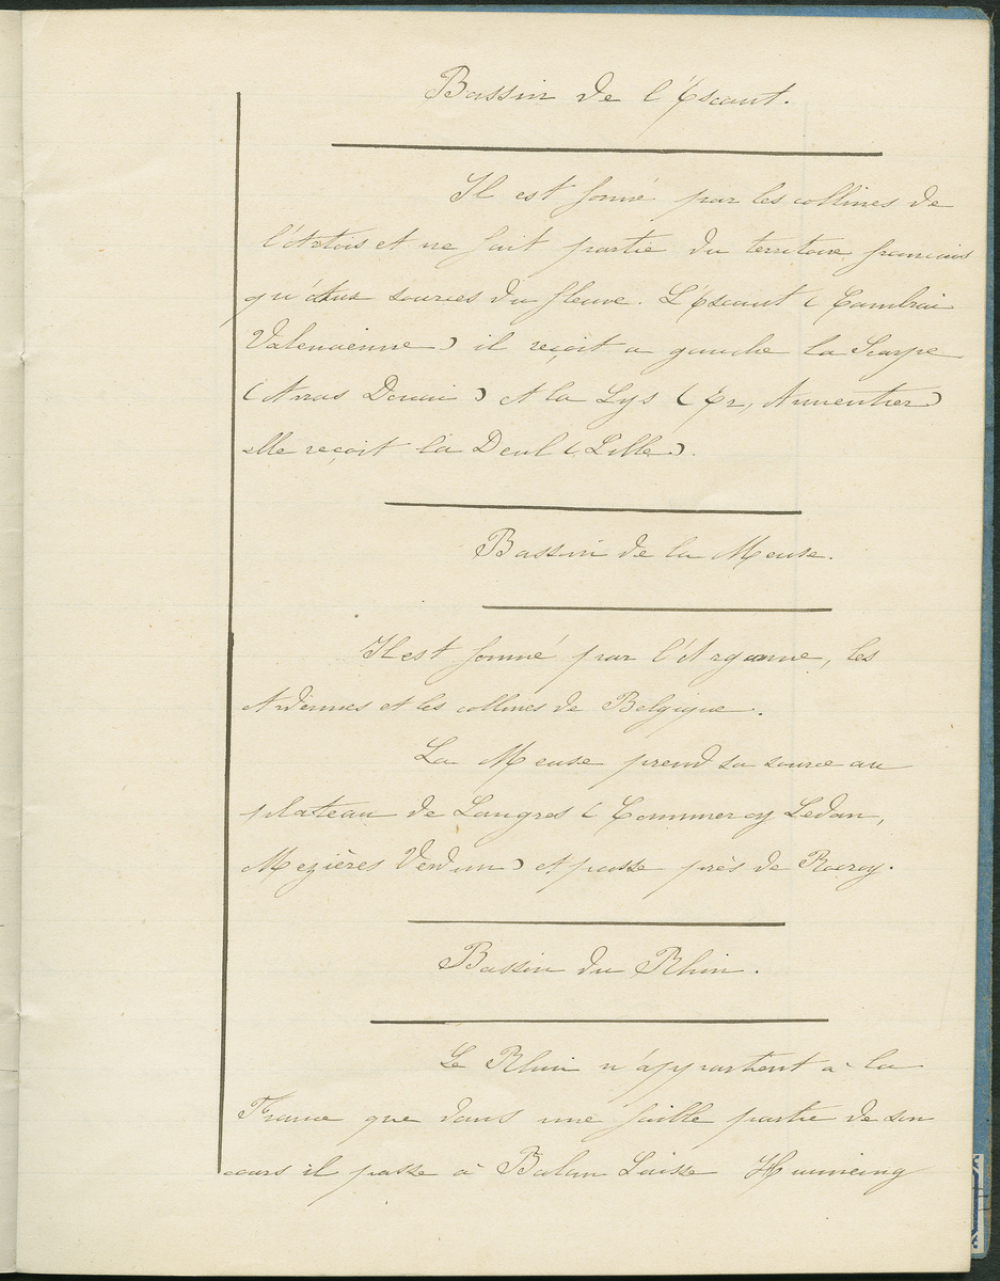 Bassin de l'Escaut.
Il est formé par les collines de
l'Artois et ne fait partie du territoire français
qu'aux sources du fleuve. L'Escaut (Cambrai
Valencienne) il reçoit a gauche la Scarpe
(Arras Douai) et la Lys (Armentier)
elle reçoit la Deul (Lille).
Bassin de la Meuse.
Il est formé par l'Argonne, les
Ardennes et les collines de Belgique.
La Meuse prend sa source au
plateau de Langres (Commercy Sedan,
Mezières Verdun) et passe près de Rocroy.
Bassin du Rhin.
Le Rhin n'appartient à la
France que dans une faible partie de son
cours il passe à Huningue